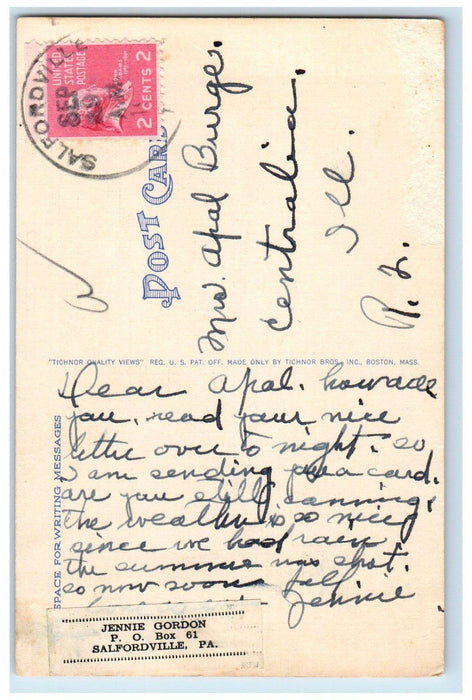 SALFORDVILLE
SEP
29
AM
UNITED STATES POSTAGE
2 CENTS 2
POST CARD
Mrs. Apal Burge.
Centralia.
Ill.
R. 2.
"TICHNOR QUALITY VIEWS" REG. U. S. PAT. OFF. MADE ONLY BY TICHNOR BROS., INC., BOSTON, MASS.
SPACE FOR WRITING MESSAGES
Dear Apal. how are
you. read your nice
letter over to night. so
I am sending you a card.
are you still canning,
the weather is so nice
since we had rain
the summer was hot.
so now soon fall
Jennie
JENNIE GORDON
P. O. Box 61
SALFORDVILLE, PA.